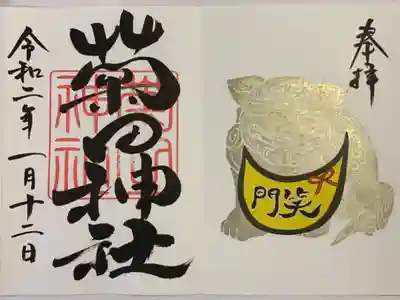 奉拝
笑門
菊田神社
令和二年 一月十二日